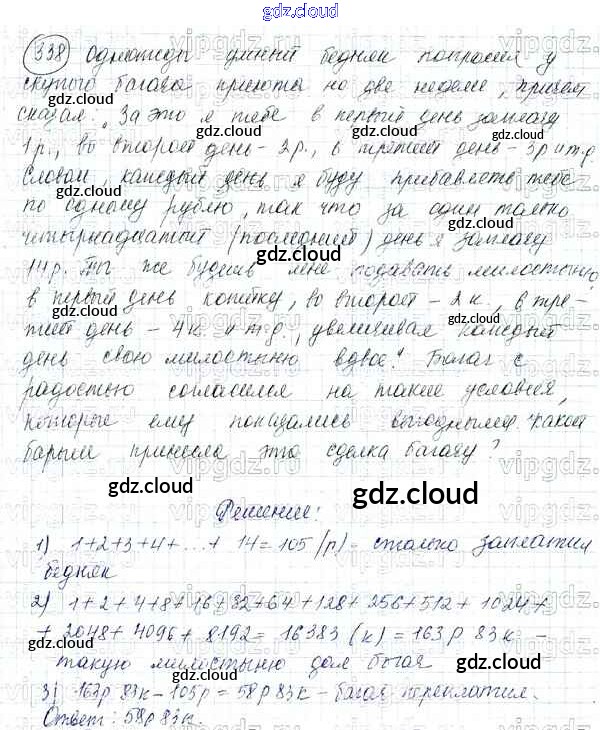 gdz.cloud
338 Однажды умный бедняк попросил у
скупого богача приюта на две недели, причем
сказал: "За это я тебе в первый день заплачу
1р., во второй день - 2р., в третий день - 3р и т.д.
Словом, каждый день я буду прибавлять тебе
по одному рублю, так что за один только
четырнадцатый (последний) день я заплачу
14р. Ты же будешь мне подавать милостыню
в первый день копейку, во второй - 2к., в тре-
тий день - 4к. и т.д., увеличивая каждый
день свою милостыню вдвое." Богач с
радостью согласился на такие условия,
которые ему показались выгодными. Какой
барыш принесла эта сделка богачу?
gdz.cloud
Решение:
1) 1+2+3+4+...+ 14 = 105 (р) - столько заплатил
бедняк
2) 1+2+4+8+16+32+64+128+256+512+1024+
+ 2048+ 4096+ 8192 = 16383 (к) = 163р 83к -
такую милостыню дал богач
3) 163р 83к - 105р = 58р 83к - богач переплатил.
Ответ: 58р 83к.